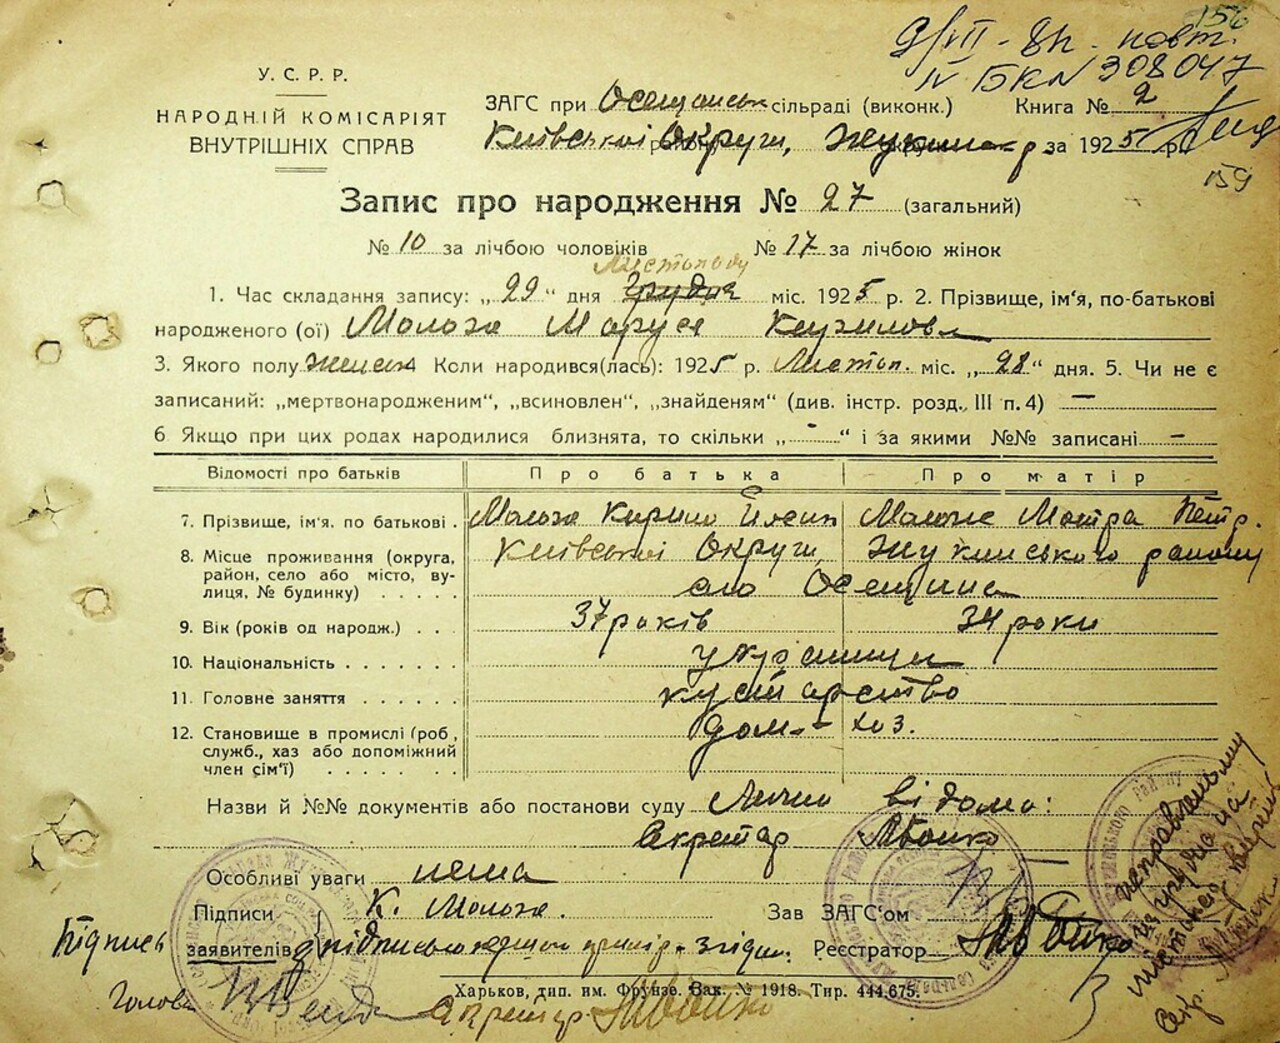 156
308047
У. С. Р. Р.
НАРОДНІЙ КОМІСАРІЯТ
ВНУТРІШНІХ СПРАВ
ЗАГС при Осещанськ сільраді (виконк.) Книга № 2
Київської Округи, за 1925 р.
159
Запис про народження № 27 (загальний)
№ 10 за лічбою чоловіків № 17 за лічбою жінок
Листопаду
1. Час складання запису: „29“ дня Грудня міс. 1925 р. 2. Прізвище, ім'я, по-батькові
народженого (ої) Малоха Маруся Кирилова
3. Якого полу женськ Коли народився(лась): 1925 р. Листоп. міс. „28“ дня. 5. Чи не є
записаний: „мертвонародженим“, „всиновлен“, „знайденям“ (див. інстр. розд. III п. 4) —
6 Якщо при цих родах народилися близнята, то скільки „-“ і за якими №№ записані —
Відомості про батьків Про батька Про матір
7. Прізвище, ім'я, по батькові . Малоха Кирило
8. Місце проживання (округа, Київської Округи, Жукинського району
район, село або місто, ву- село Осещина
лиця, № будинку) . . . . .
9. Вік (років од народж.) . . . 37 років 34 роки
10. Національність . . . . . . . українци
11. Головне заняття . . . . . . кустарство
12. Становище в промислі (роб., дом. - хоз.
служб., хаз або допоміжний
член сім'ї) . . . . . . .
Назви й №№ документів або постанови суду Лично відомо:
Секретар Мвойко
Особливі уваги нема
Підписи К. Малоха. Зав ЗАГС'ом
Підпись заявителів Реєстратор
Голова Секретар
Харьков, дип. им. Фрунзе. Зак. № 1918. Тир. 444.675.